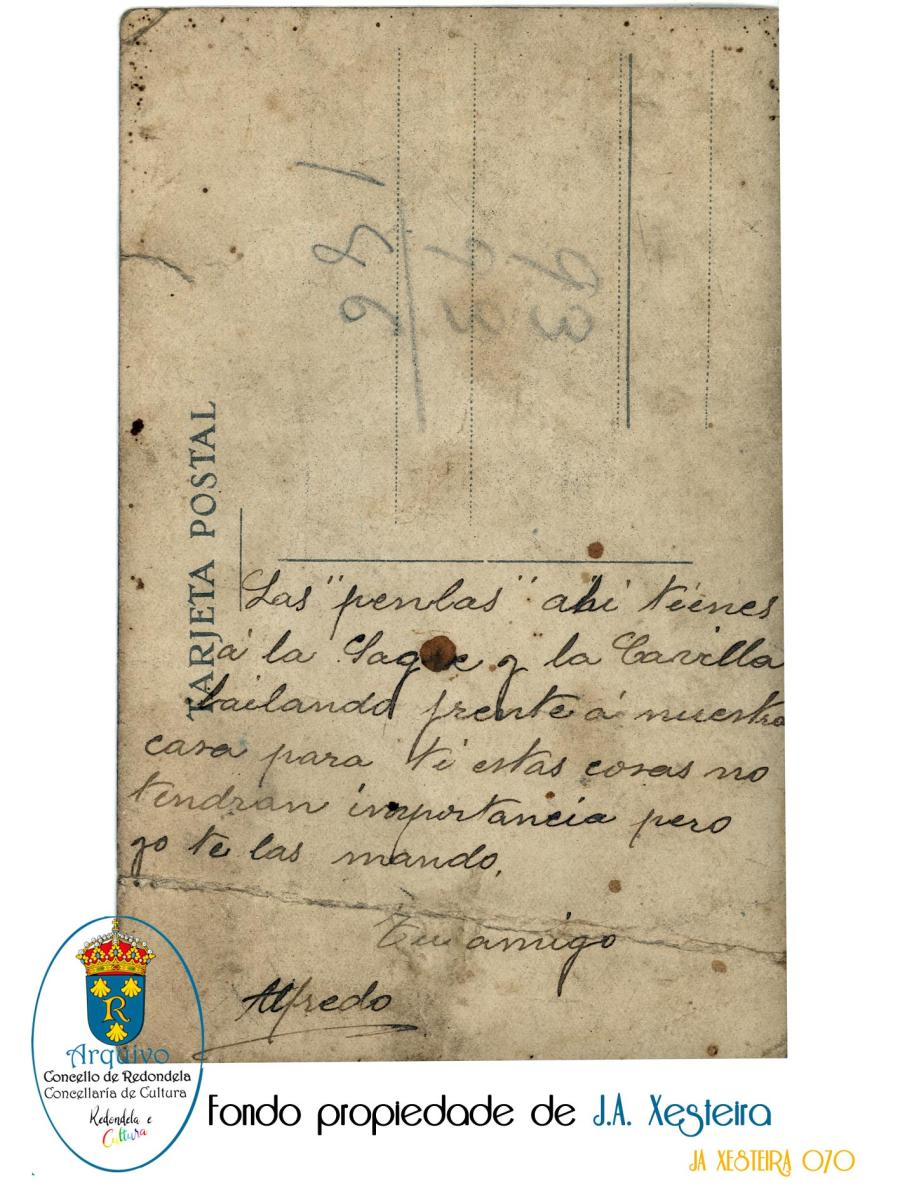 TARJETA POSTAL
Las "penlas" ahi tienes
á la Saque y la Cavilla
bailando frente á nuestra
casa para ti estas cosas no
tendran importancia pero
yo te las mando.
Tu amigo
Alfredo
R
Arquivo
Concello de Redondela
Concellaría de Cultura
Redondela e
Cultura
Fondo propiedade de J.A. Xesteira
JA XESTEIRA 070